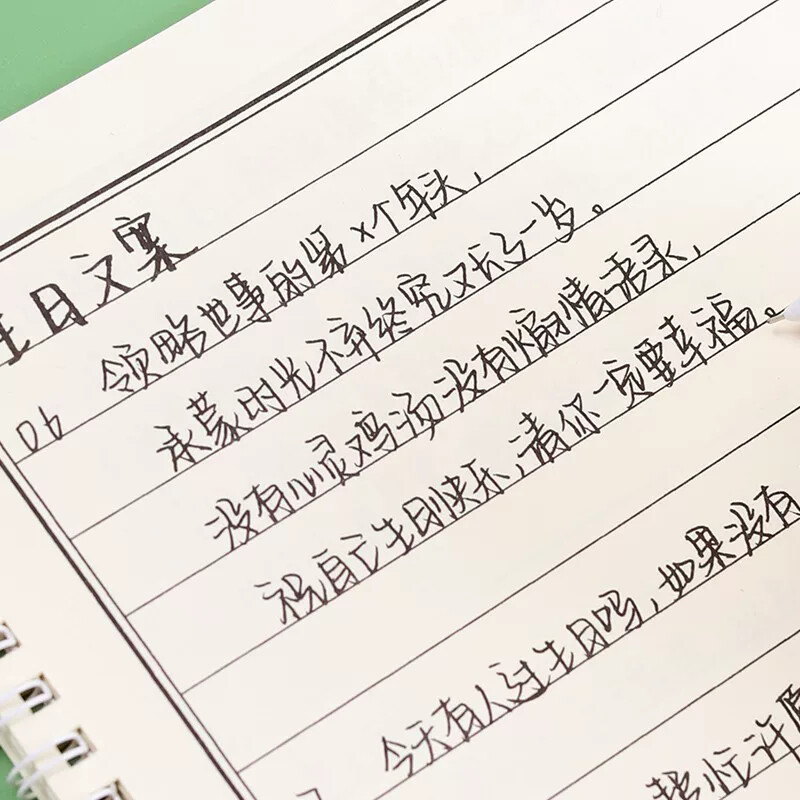 生日文案
06 领略世事的第x个年头，
承蒙时光不弃终究又长了一岁。
没有心灵鸡汤没有煽情语录，
祝自己生日快乐，请你一定要幸福。
今天有人过生日吗，如果没有
帮忙许愿